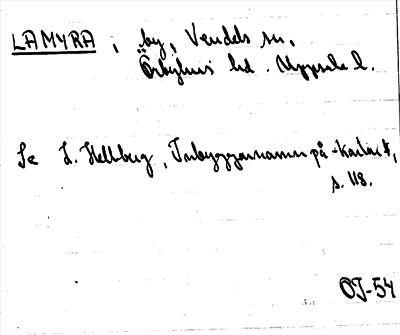 LAMYRA, by, Vendels sn,
Örbyhus hd. Uppsala l.
Se L. Hellberg, Inbyggarnamn på -karlar,
s. 118.
OJ-54